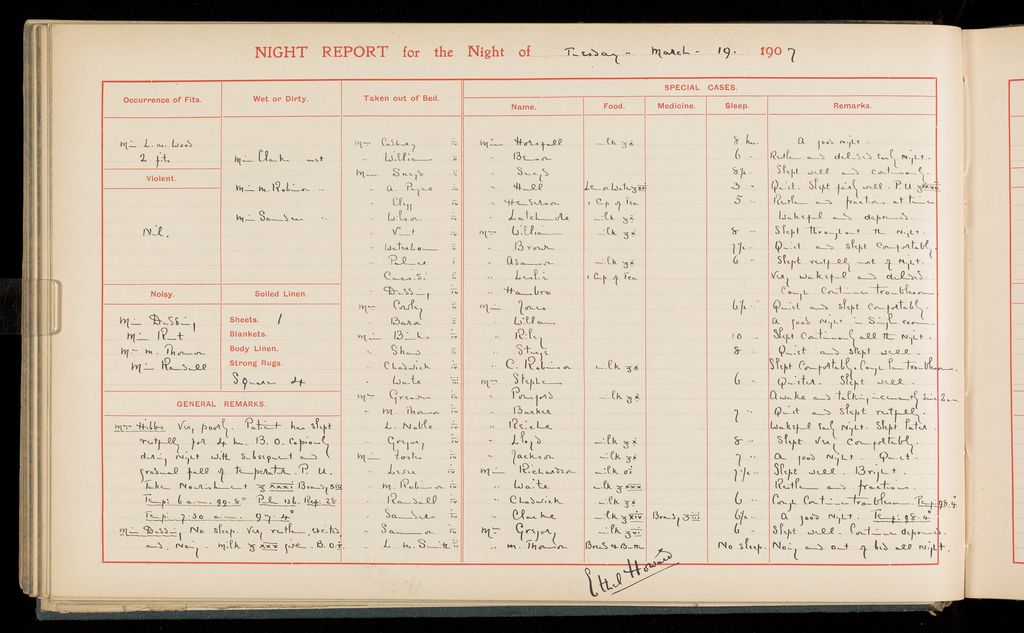 NIGHT REPORT for the Night of Tuesday - March - 19. 1907
Occurrence of Fits.
Miss L. M. Wood
2 fits
Violent.
Nil.
Noisy.
Miss Dussing
Miss
Mrs M. Thomson
Miss Randall
Wet or Dirty.
Miss Clarke wet
Miss M. Robinson "
Miss Sanders "
Soiled Linen.
Sheets. 1
Blankets.
Body Linen.
Strong Rugs.
Squares 4
GENERAL REMARKS.
Mrs Hibbs Very poorly. Patient has slept
restfully for 4 hrs. B.O. Copiously
during night with subsequent and
gradual fall of temperature. P.U.
Taken Nourishment Brandy
Temp: 6 a.m. 99.8° Pulse 136. Resp: 28
Temp: 7.30 a.m. 97.4°
Miss Dussing No sleep. Very restless, excited,
and Noisy. Milk given. B.O.
Taken out of Bed.
Mrs Cadbury
" Williams
Miss
" A. Payne
" Clegg
" Wilson
"
" Waterhouse
" Palmer
"
" Dussing
Mrs Cowley
"
Miss Binks
" Shaw
" Chadwick
" Waite
Mrs Greaves
" M. Thomson
" L. Noble
" Gregory
Miss Foster
"
" M. Robinson
" Randall
" Sanders
"
" L. M. Smith
SPECIAL CASES.
Name. Food. Medicine. Sleep. Remarks.
Miss Horsfall milk 8 hrs. A good night.
" Benson 6 " Restless and deluded early night.
" 8½ " Slept well and continuously.
" Hull Lemon Water 3 " Quiet. Slept fairly well. P.U.
" Henderson 1 Cup of Tea 5 " Restless and fractious at times
" Latchmore milk Wakeful and depressed.
Mrs Williams milk 8 " Slept throughout the night.
" Brown 7½ " Quiet and slept comfortably.
" Adamson milk 6 " Slept restfully most of night.
" Leslie 1 Cup of Tea Very wakeful and deluded.
" Hambro Cough continues troublesome.
Miss Jones 6½ " Quiet and slept comfortably.
" Willans A good night in Single room.
" Riley 10 " Slept continuously all the night.
" 8 " Quiet and slept well.
" C. Robinson milk Slept comfortably. Cough less troublesome.
Mrs Stephens 6 " Quieter. Slept well.
" milk Awake and talking incessantly since 2 a.m.
" Barker 7 " Quiet and slept restfully.
" Reiche Wakeful early night. Slept later
" Lloyd milk 8 " Slept very comfortably.
" Jackson milk 7 " A good night. Quiet.
Miss Richardson milk 7½ " Slept well. Bright.
" Waite milk Restless and fractious.
" Chadwick milk 6 " Cough continues troublesome Temp: 98.4°
" Clarke milk Brandy 6½ " A good night. Temp: 98.4°
Mrs Gregory milk 6 " Slept well. Continues depressed.
" M. Thomson Bread & Butter No sleep. Noisy and out of bed all night.
Ethel Howard